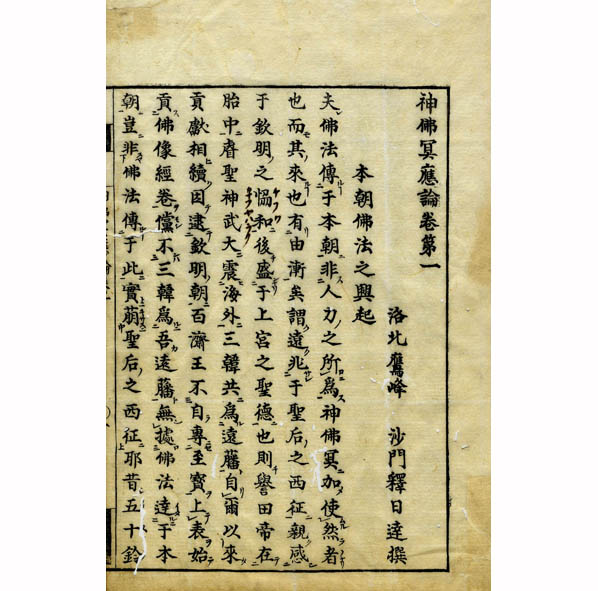 神佛冥應論卷第一
洛北鷹峰 沙門釋日達撰
本朝佛法之興起
夫佛法傳于本朝非人力之所爲神佛冥加使然者
也而其來也有由漸矣謂遠兆于聖后之西征親感
于欽明之惱和後盛于上宮之聖德也則譽田帝在
胎中睿聖神武大震海外三韓共爲遠藩自爾以來
貢獻相續因逮欽明朝百濟王不自專至寶上表始
貢佛像經卷儻不三韓爲吾遠藩無據佛法達于本
朝豈非佛法傳于此實萠聖后之西征耶昔五十鈴